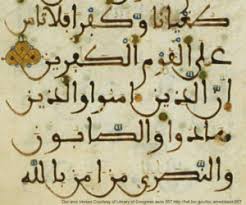 طغيانا وكفرا فلا تاس
على القوم الكفرين
ان الذين امنوا والذين
هادوا والصابون
والنصرى من امن بالله
Verses Courtesy of Library of Congress